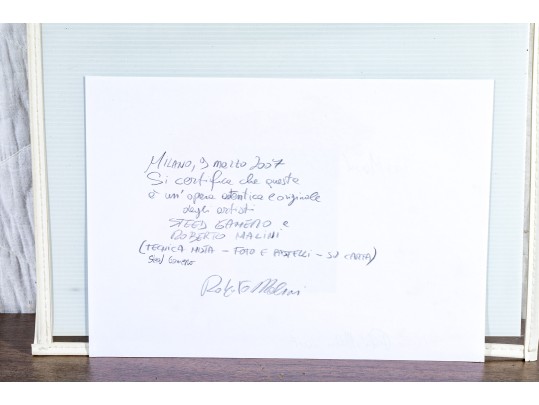 MILANO, 9 MARZO 2007
Si certifica che questa
è un'opera autentica e originale
degli artisti
STEED GAMERO e
ROBERTO MALINI
(TECNICA MISTA - FOTO E PASTELLI - SU CARTA)
Steed Gamero
Roberto Malini